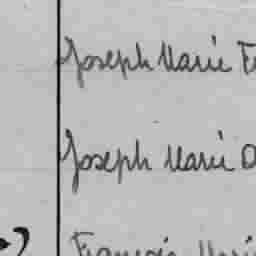 Joseph Marie F
Joseph Marie D
François Marie